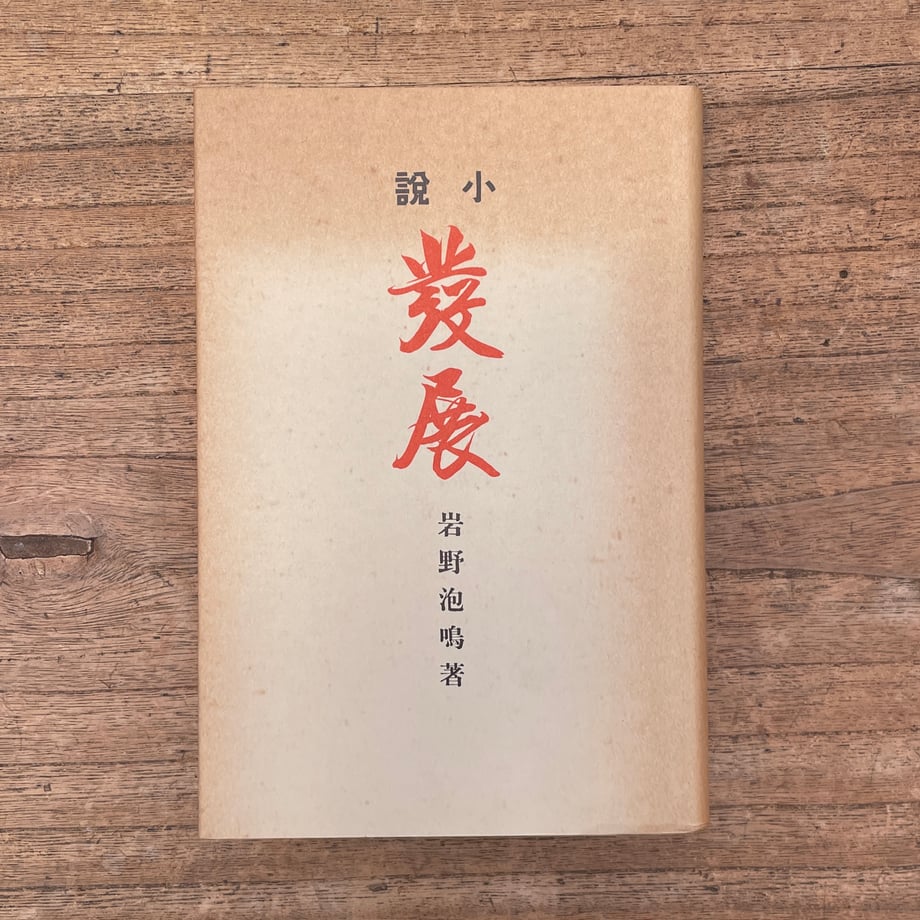 小說
發展
岩野泡鳴著